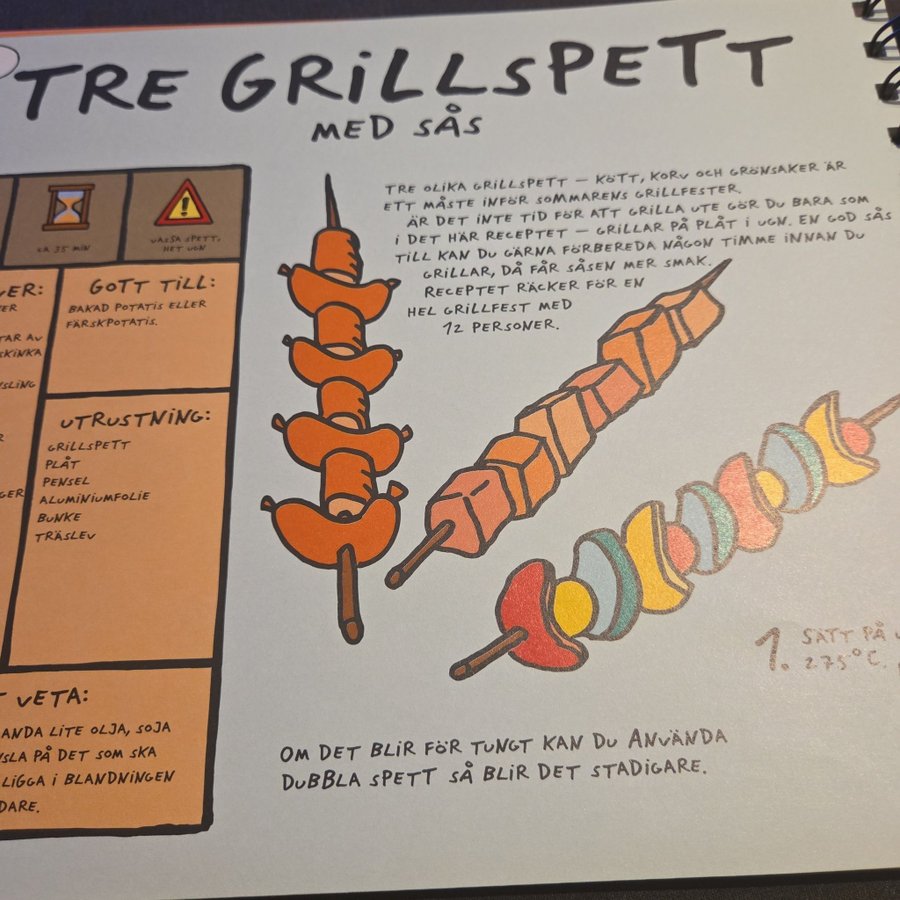 TRE GRILLSPETT
MED SÅS
CA 35 MIN
VASSA SPETT,
HET UGN
TRE OLIKA GRILLSPETT – KÖTT, KORV OCH GRÖNSAKER ÄR
ETT MÅSTE INFÖR SOMMARENS GRILLFESTER.
ÄR DET INTE TID FÖR ATT GRILLA UTE GÖR DU BARA SOM
I DET HÄR RECEPTET – GRILLAR PÅ PLÅT I UGN. EN GOD SÅS
TILL KAN DU GÄRNA FÖRBEREDA NÅGON TIMME INNAN DU
GRILLAR, DÅ FÅR SÅSEN MER SMAK.
RECEPTET RÄCKER FÖR EN
HEL GRILLFEST MED
12 PERSONER.
GOTT TILL:
BAKAD POTATIS ELLER
FÄRSKPOTATIS.
UTRUSTNING:
GRILLSPETT
PLÅT
PENSEL
ALUMINIUMFOLIE
BUNKE
TRÄSLEV
VETA:
LITE OLJA, SOJA
PÅ DET SOM SKA
LIGGA I BLANDNINGEN
1. SÄTT PÅ
275°C.
OM DET BLIR FÖR TUNGT KAN DU ANVÄNDA
DUBBLA SPETT SÅ BLIR DET STADIGARE.